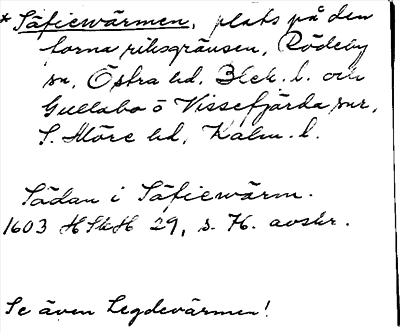 * Säfiewärmen, plats på den
forna riksgränsen, Rödeby
sn, Östra hd, Blek. l. och
Gullabo o Vissefjärda snr,
S. Möre hd, Kalm. l.
Sådan i Säfiewärm.
1603 HSkH 29, s. 76. avskr.
Se även Legdevärmen!